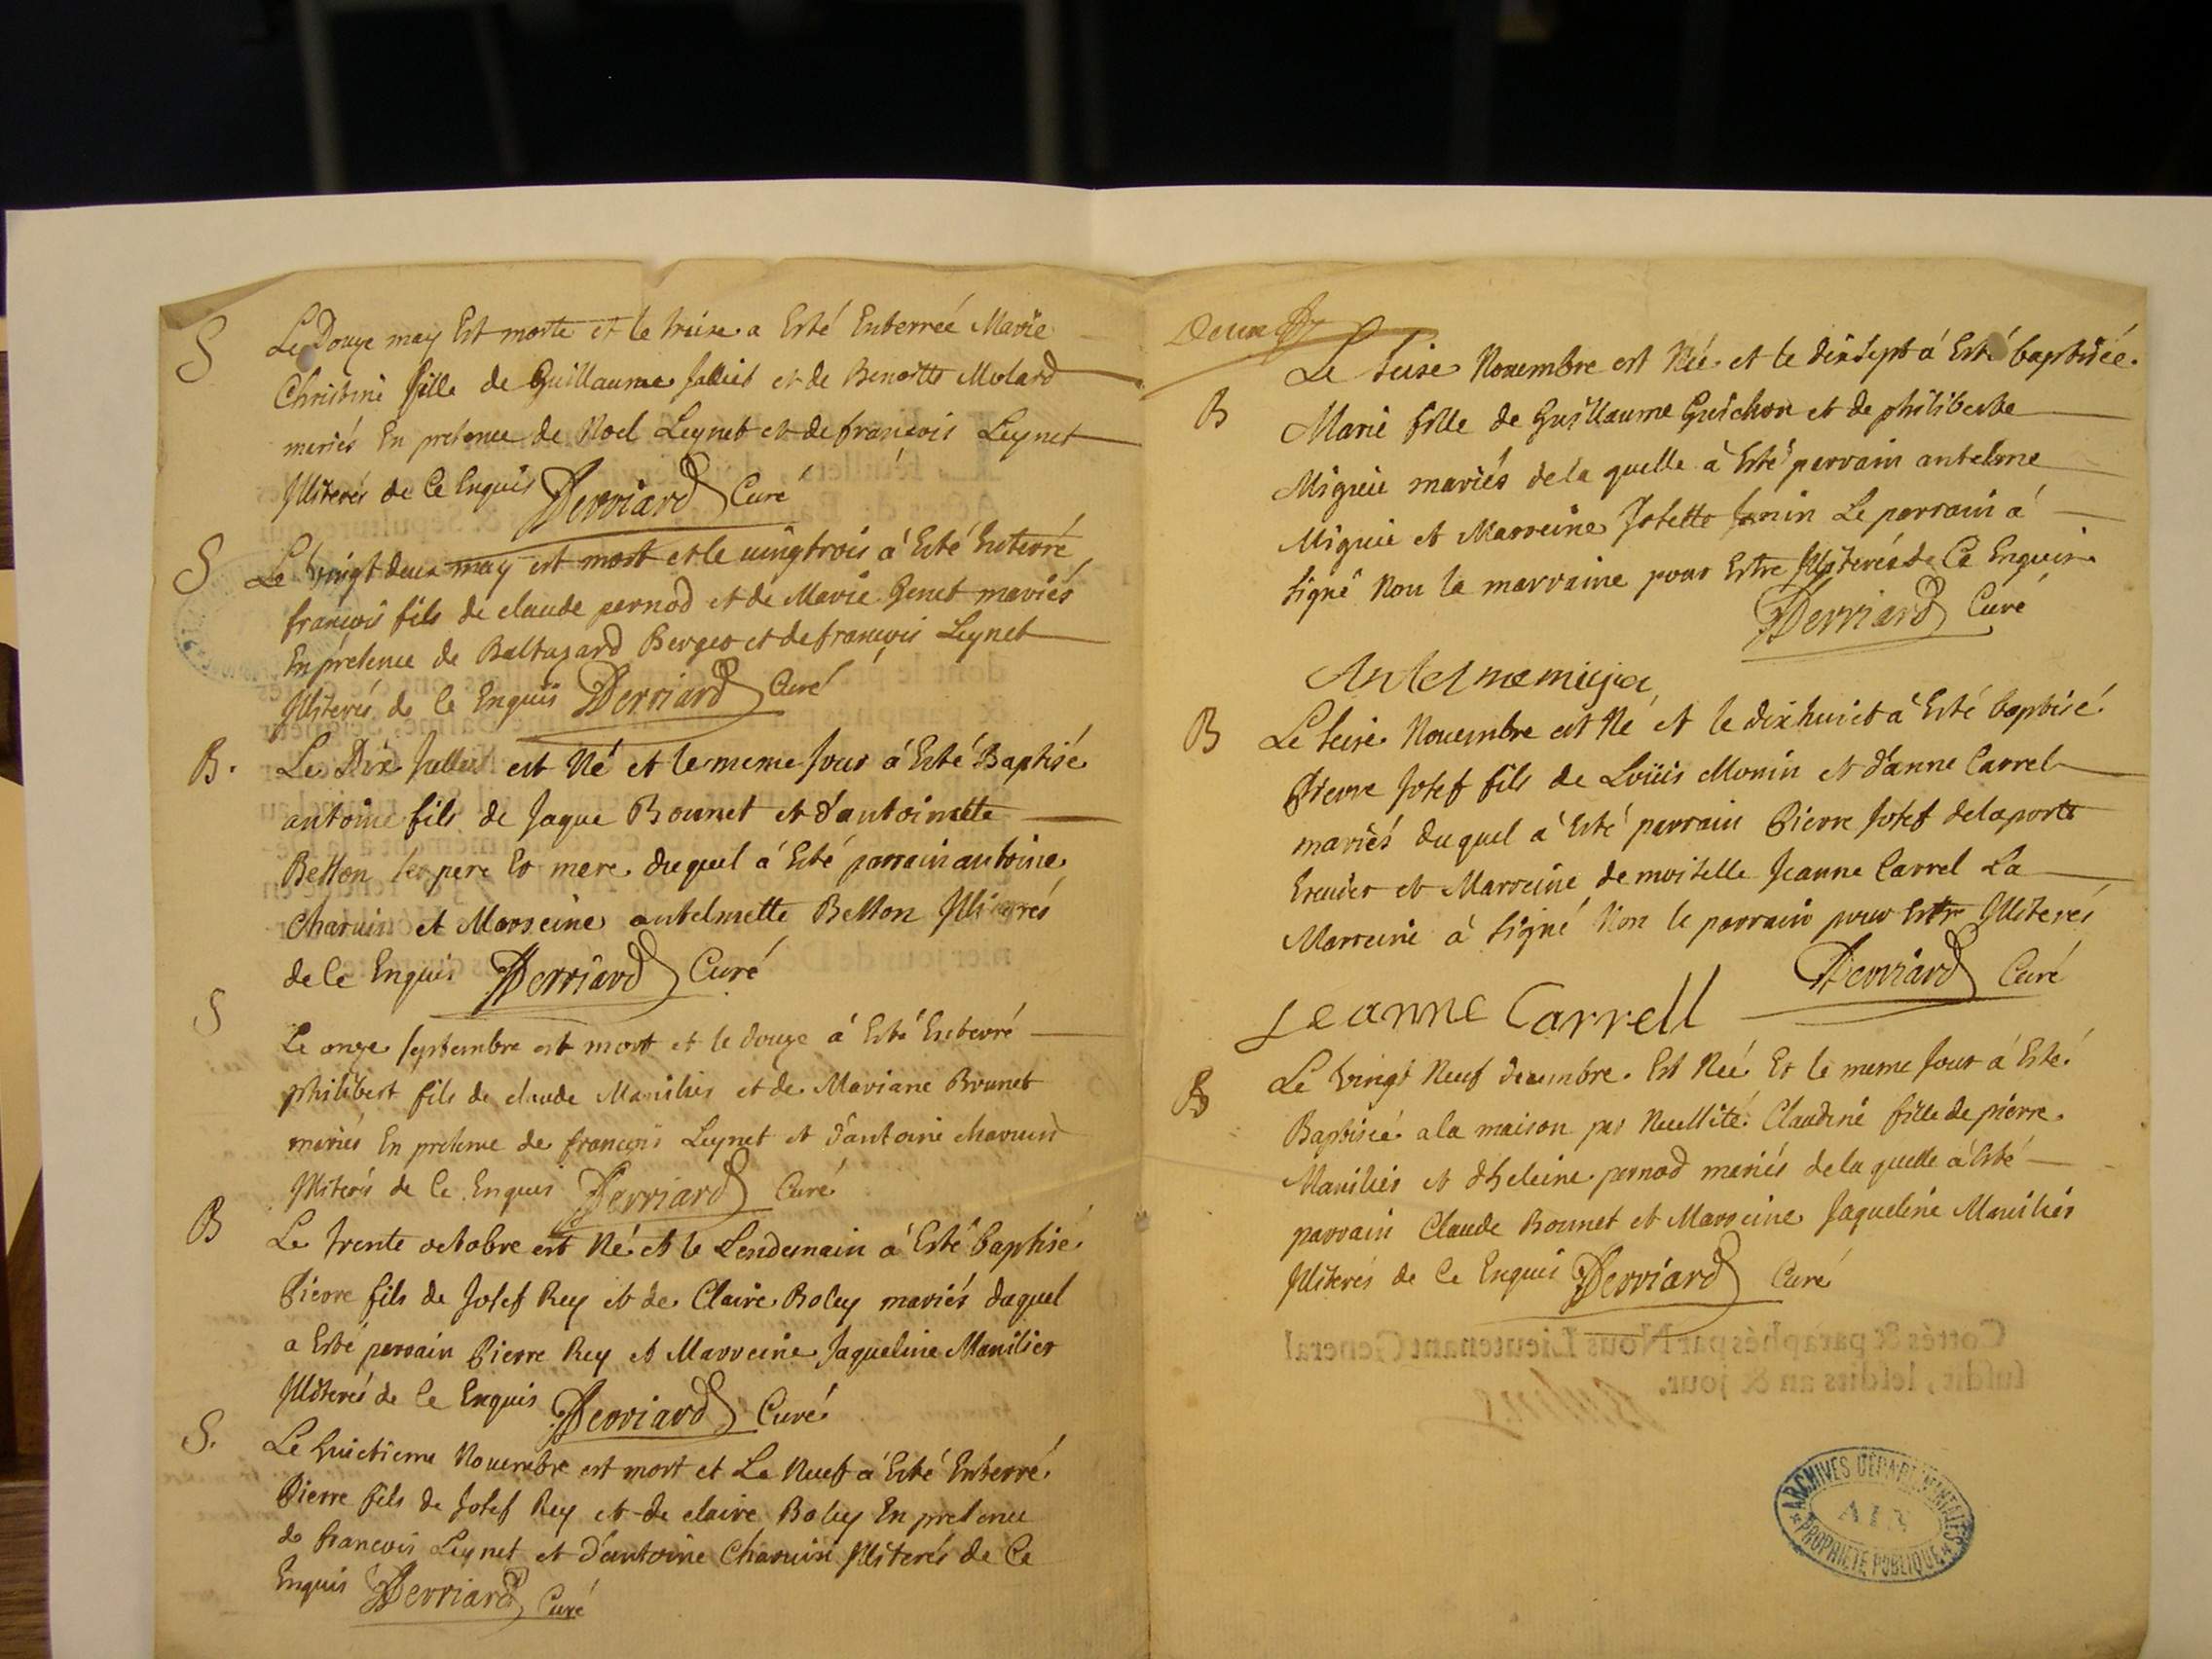 S
Le Douze may Est morte et le treise a Esté Enterreé Marie
Christine fille de Guillaume Jalliet et de Benoitte Molard
meriés En presence de Noel Leynet et de françois Leynet
Illiterés de Ce Enquis Derriard Curé
S
Le vingt deux may est mort et le uingtrois á Esté Enterré
françois fils de claude pernod et de Marie Genet mariés
En presence de Baltazard Berger et de françois Leynet
Illiterés de Ce Enquis Derriard Curé
B.
Le Dix Juillet est Né et le meme Jour á Esté Baptisé
antoine fils de Jaque Bonnet et d'antoinette
Betton ses pere Et mere duquel á Esté parrain antoine
Charuin et Marreine antelmette Betton Illiterés
de Ce Enquis Derriard Curé
S
Le onze septembre est mort et le douze á Esté Enterré
philibert fils de claude Manilier et de Mariane Brunet
meriés En presence de françois Leynet et d'antoine charuin
Illiterés de Ce Enquis Derriard Curé
B
Le trente octobre est Né et le Lendemain á Esté baptisé
Pierre fils de Josef Rey et de Claire Boley mariés duquel
a Esté parrain Pierre Rey et Marreine Jaqueline Manilier
Illiterés de Ce Enquis Derriard Curé
S.
Le huictieme Nouembre est mort et Le Neuf á Esté Enterré
Pierre fils de Josef Rey et de claire Boley En presence
de francois Leynet et d'antoine Charuin Illiterés de Ce
Enquis Derriard Curé
Deux
Le seise Nouembre est Née et le dixsept á Esté baptisée
B
Marie fille de Guillaume Guichon et de philiberte
Miguie mariés de la quelle á Esté parrain antelme
Miguie et Marreine Josette Janin Le parrain á
signé Non la marraine pour Estre Illiterés de Ce Enquis
Derriard Curé
Antelme migia
B
Le seise Nouembre est Né et le dixhuict á Esté baptisé
Pierre Josef fils de Loüis Monin et d'anne Carrel
mariés duquel á Esté parrain Pierre Josef delaporte
Ereuder et Marreine demoiselle Jeanne Carrel La
Marreine á signé Non le parrain pour Estre Illiterés
Derriard Curé
Jeanne Carrell
B
Le vingt Neuf decembre Est Née Et le meme Jour á Esté
Baptisée a la maison par Neceßité Claudine fille de pierre
Manilier et d'heleine pernod meriés de la quelle á Esté
parrain Claude Bonnet et Marreine Jaqueline Manilier
Illiterés de Ce Enquis Derriard Curé
Cottés & paraphés par Nous Lieutenant General
susdit, lesdits an & jour.
ARCHIVES DÉPARTEMENTALES
AIN
PROPRIÉTÉ PUBLIQUE